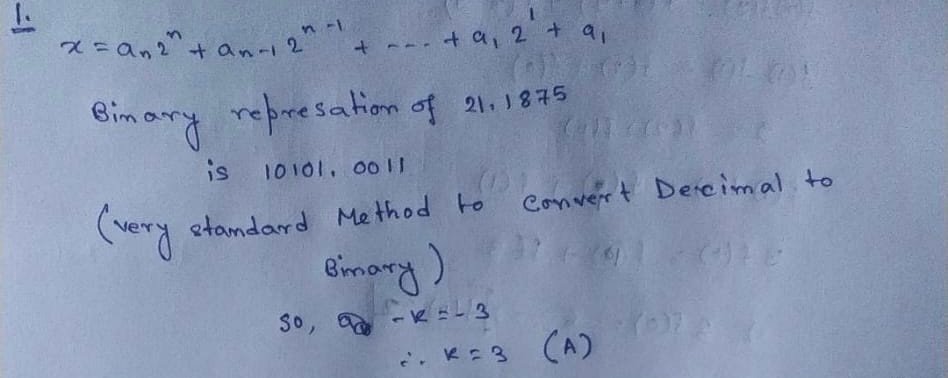 1.
x = aₙ2ⁿ + aₙ₋₁2ⁿ⁻¹ + --- + a₁ 2¹ + a₁
Binary represation of 21.1875
is 10101.0011
(very standard Method to Convert Decimal to
Binary)
so, -k = -3
∴ k = 3 (A)